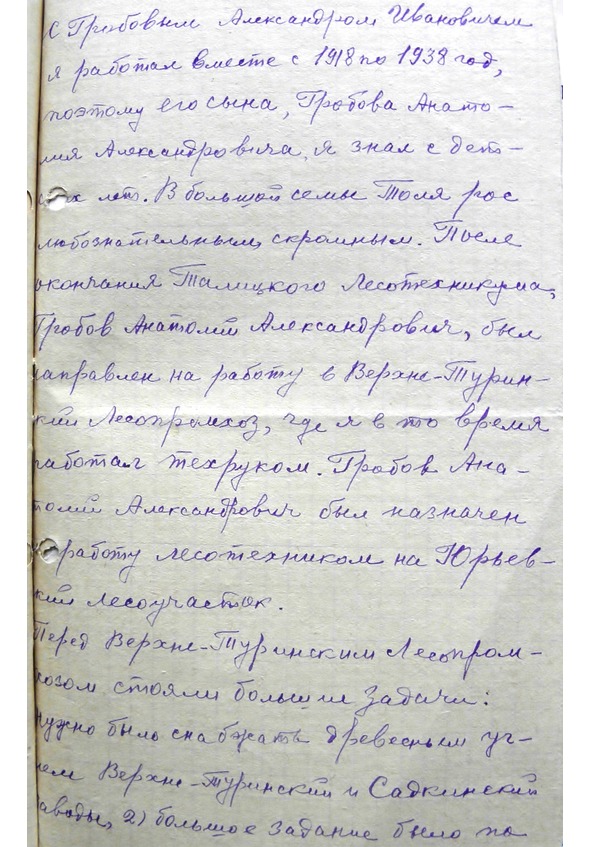 С Грабовым Александром Ивановичем
я работал вместе с 1918 по 1938 год,
поэтому его сына, Грабова Анато-
лия Александровича, я знал с дет-
ских лет. В большой семье Толя рос
любознательным, скромным. После
окончания Талицкого Лесотехникума,
Грабов Анатолий Александрович, был
направлен на работу в Верхне-Турин-
кий Леспромхоз, где я в то время
работал техруком. Грабов Ана-
толий Александрович был назначен
работу лесотехником на Юрьев-
кий лесоучасток.
Перед Верхне-Туринским Леспром-
хозом стояли большие задачи:
нужно было снабжать древесным уг-
лем Верхне-Туринский и Садкинский
заводы, 2) большое задание было по